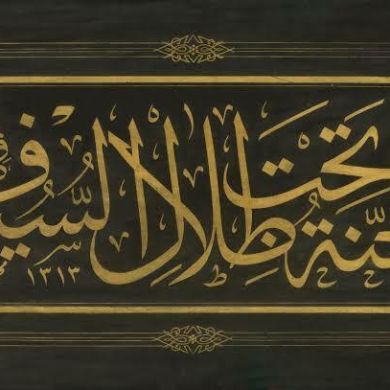 ـنّة تحت ظلال السُّيوف
١٣١٣